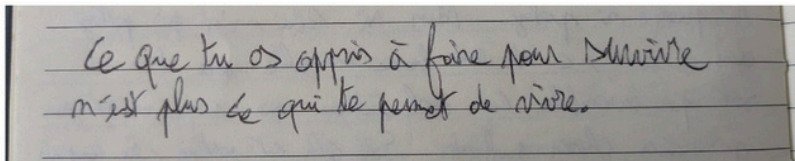 Ce que tu as appris à faire pour survivre
n'est plus ce qui te permet de vivre.